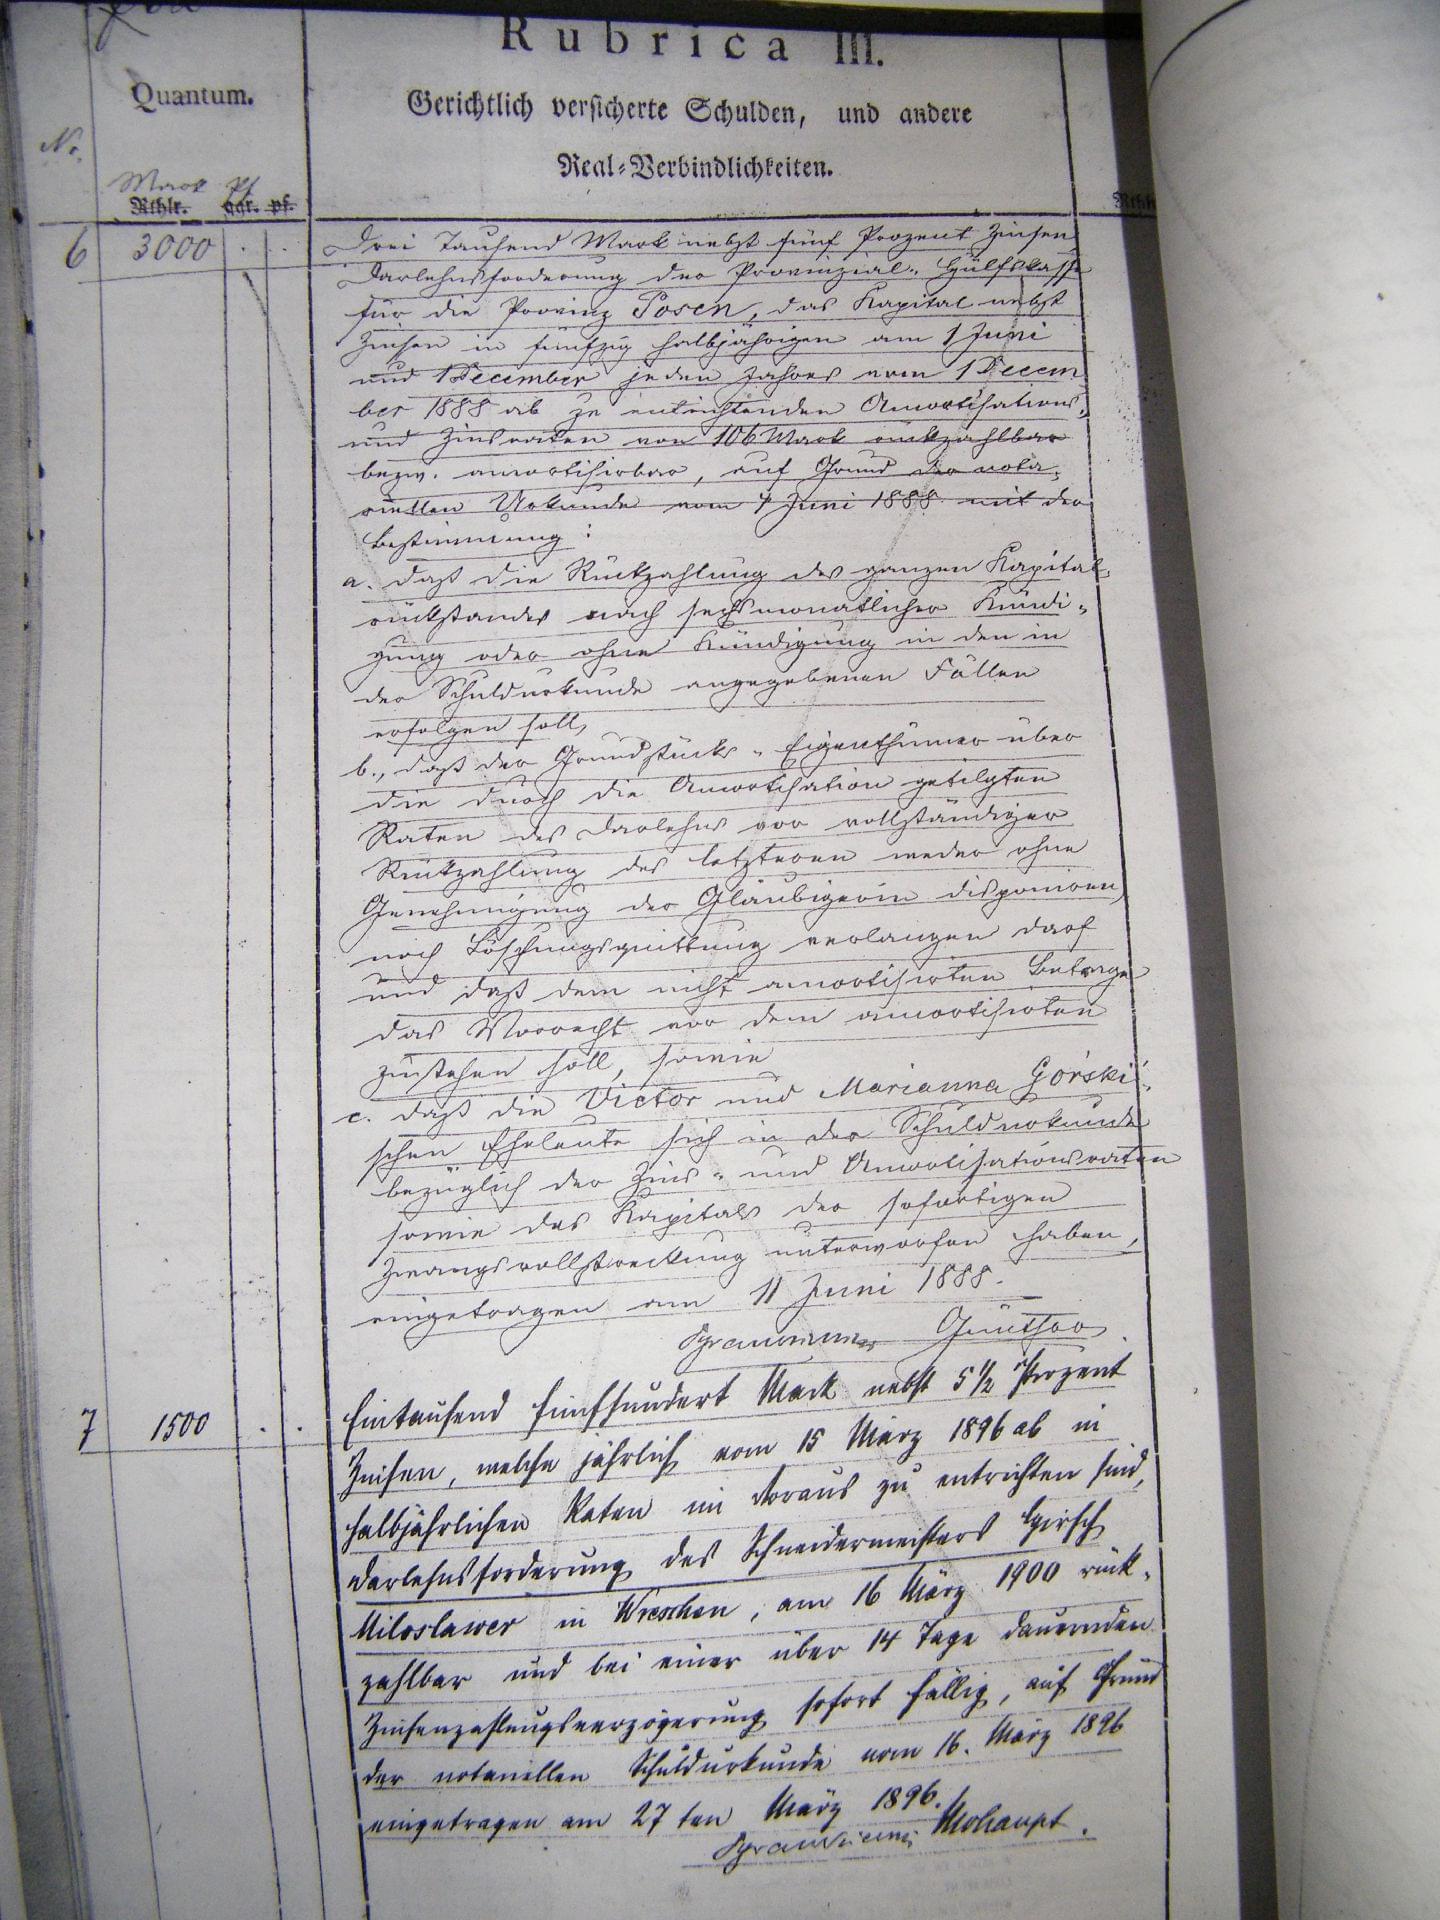 Rubrica III.
Quantum.
Gerichtlich versicherte Schulden, und andere
No.
Real-Verbindlichkeiten.
Mark Pf
Rthlr. ggr. pf.
6 3000 . . Drei Tausend Mark nebst fünf Prozent Zinsen
Darlehnsforderung der Provinzial-Hülfskasse
für die Provinz Posen, das Kapital nebst
Zinsen in fünfzig halbjährigen am 1 Juni
und 1 December jeden Jahres vom 1 Decem
ber 1888 ab zu entrichtenden Amortisations-
und Zinsraten von 106 Mark rückzahlbar
bezw. amortisirbar, auf Grund der nota-
riellen Urkunde vom 7 Juni 1888 mit der
Bestimmung:
a. daß die Rückzahlung des ganzen Kapital-
rückstandes nach sechsmonatlicher Kündi-
gung oder ohne Kündigung in den in
der Schuldurkunde angegebenen Fällen
erfolgen soll,
b., daß der Grundstücks-Eigenthümer über
die durch die Amortisation getilgten
Raten des Darlehns vor vollständiger
Rückzahlung des letzteren weder ohne
Genehmigung der Gläubigerin disponiren,
noch Löschungsquittung verlangen darf
und daß dem nicht amortisirten Betrage
das Vorrecht vor dem amortisirten
zustehen soll, sowie
c. daß die Victor und Marianna Górski-
schen Eheleute sich in der Schuldurkunde
bezüglich der Zins- und Amortisationsraten
sowie des Kapitals der sofortigen
Zwangsvollstreckung unterworfen haben,
eingetragen am 11 Juni 1888.
Günther
7 1500 . . Eintausend fünfhundert Mark nebst 5 1/2 Prozent
Zinsen, welche jährlich vom 15 März 1896 ab in
halbjährlichen Raten im Voraus zu entrichten sind,
Darlehnsforderung des Schneidermeisters Hirsch
Miloslawer in Wreschen, am 16 März 1900 rück-
zahlbar und bei einer über 14 Tage dauernden
Zinsenzahlungsverzögerung sofort fällig, auf Grund
der notariellen Schuldurkunde vom 16. März 1896
eingetragen am 27ten März 1896.
Mohaupt.